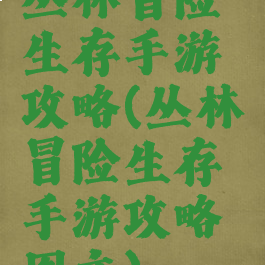 丛林冒险
生存手游
攻略(丛林
冒险生存
手游攻略
图文)